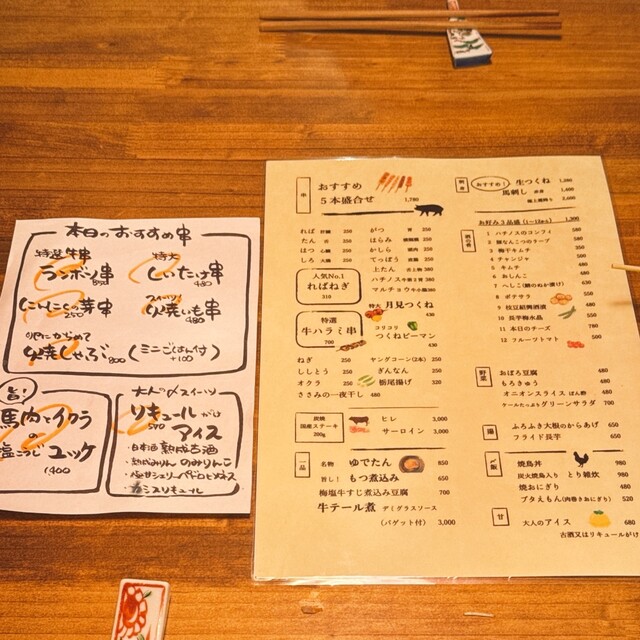 本日のおすすめ串
特選牛串
ランボソ串
850
特大
しいたけ串
480
にんにくの芽串
250
スイーツ!
火焼いも串
480
火焼しゃぶ 800
(ミニごはん付)
+100
旨!
馬肉とイクラ
の
塩こうじユッケ
1,400
大人の〆スイーツ
リキュールがけ
アイス
・日本酒 熟成古酒
・熟成みりん のみりんこ
・カシスリキュール
串
おすすめ
5本盛合せ 1,780
れば 肝臓 250
たん 舌 250
はつ 心臓 250
しろ 大腸 250
人気No.1
ればねぎ
310
特選
牛ハラミ串
700
ねぎ 250
ししとう 250
オクラ 250
ささみの一夜干し 480
がつ 胃 250
はらみ 横隔膜 250
かしら 頭肉 250
てっぽう 直腸 250
上たん 舌上物 380
ハチノス 牛胃2番 380
マルチョウ 牛小腸 380
特大 月見つくね
430
コリコリ
つくねピーマン
430
ヤングコーン(2本) 250
ぎんなん 250
栃尾揚げ 320
炭焼
国産ステーキ
200g
ヒレ 3,000
サーロイン 3,000
一品
名物 ゆでたん 850
旨し! もつ煮込み 650
梅塩牛すじ煮込み豆腐 700
牛テール煮 デミグラスソース
(バゲット付) 3,000
おすすめ! 生つくね 1,280
馬刺し 赤身 1,600
お好み3品盛 1,300
酒の素
1 ハチノスのコンフィ 580
2 鶏なんこつのラープ 580
3 梅干キムチ 380
4 チャンジャ 480
5 キムチ 480
6 おしんこ 480
7 へしこ(鯖のぬか漬け) 630
8 ポテサラ 550
9 枝豆紹興酒漬 480
10 長芋梅水晶 550
11 本日のチーズ 780
12 フルーツトマト 500
野菜
おぼろ豆腐 480
もろきゅう 480
オニオンスライス ぽん酢 480
テールたっぷり グリーンサラダ 700
揚
ふろふき大根のからあげ 650
フライド長芋 650
〆飯
焼鳥丼 980
炭火焼鳥入り とり雑炊 680
焼おにぎり 480
ブタえもん(肉巻きおにぎり) 520
甘
大人のアイス 680
古酒又はリキュールがけ